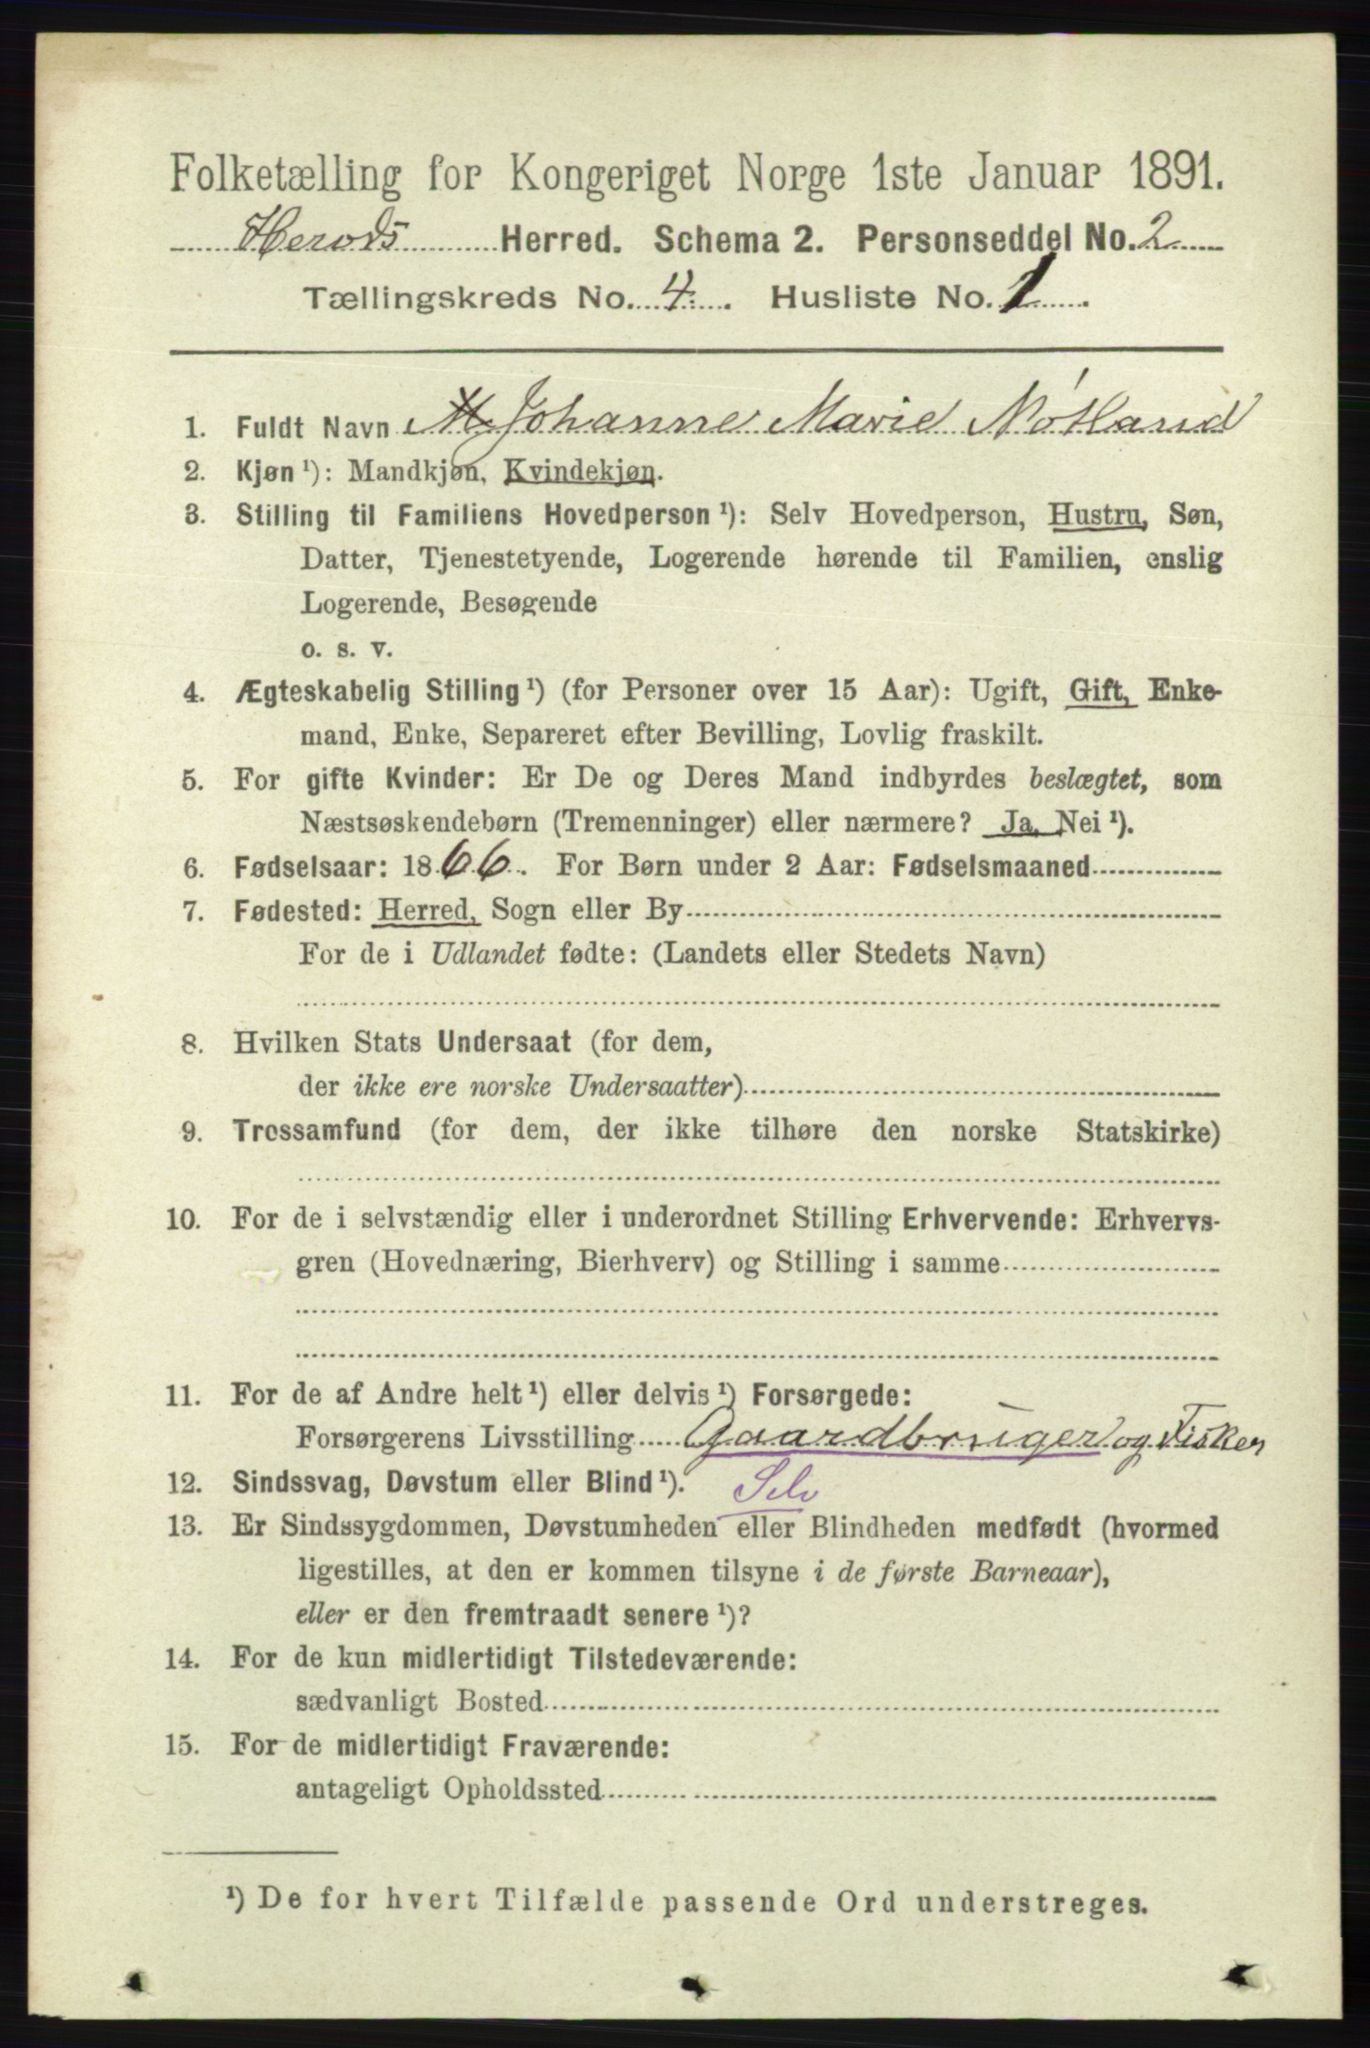 Folketælling for Kongeriget Norge 1ste Januar 1891.
Herods Herred. Schema 2. Personseddel No. 2
Tællingskreds No. 4. Husliste No. 1.
1. Fuldt Navn Johanne Marie Nøtland
2. Kjøn¹): Mandkjøn, Kvindekjøn.
3. Stilling til Familiens Hovedperson¹): Selv Hovedperson, Hustru, Søn,
Datter, Tjenestetyende, Logerende hørende til Familien, enslig
Logerende, Besøgende
o. s. v.
4. Ægteskabelig Stilling¹) (for Personer over 15 Aar): Ugift, Gift, Enke-
mand, Enke, Separeret efter Bevilling, Lovlig fraskilt.
5. For gifte Kvinder: Er De og Deres Mand indbyrdes beslægtet, som
Næstsøskendebørn (Tremenninger) eller nærmere? Ja, Nei¹).
6. Fødselsaar: 1866. For Børn under 2 Aar: Fødselsmaaned
7. Fødested: Herred, Sogn eller By
For de i Udlandet fødte: (Landets eller Stedets Navn)
8. Hvilken Stats Undersaat (for dem,
der ikke ere norske Undersaatter)
9. Trossamfund (for dem, der ikke tilhøre den norske Statskirke)
10. For de i selvstændig eller i underordnet Stilling Erhvervende: Erhvervs-
gren (Hovednæring, Bierhverv) og Stilling i samme
11. For de af Andre helt¹) eller delvis¹) Forsørgede:
Forsørgerens Livsstilling Gaardbruger og Fisker
12. Sindssvag, Døvstum eller Blind¹). Selv
13. Er Sindssygdommen, Døvstumheden eller Blindheden medfødt (hvormed
ligestilles, at den er kommen tilsyne i de første Barneaar),
eller er den fremtraadt senere¹)?
14. For de kun midlertidigt Tilstedeværende:
sædvanligt Bosted
15. For de midlertidigt Fraværende:
antageligt Opholdssted
¹) De for hvert Tilfælde passende Ord understreges.